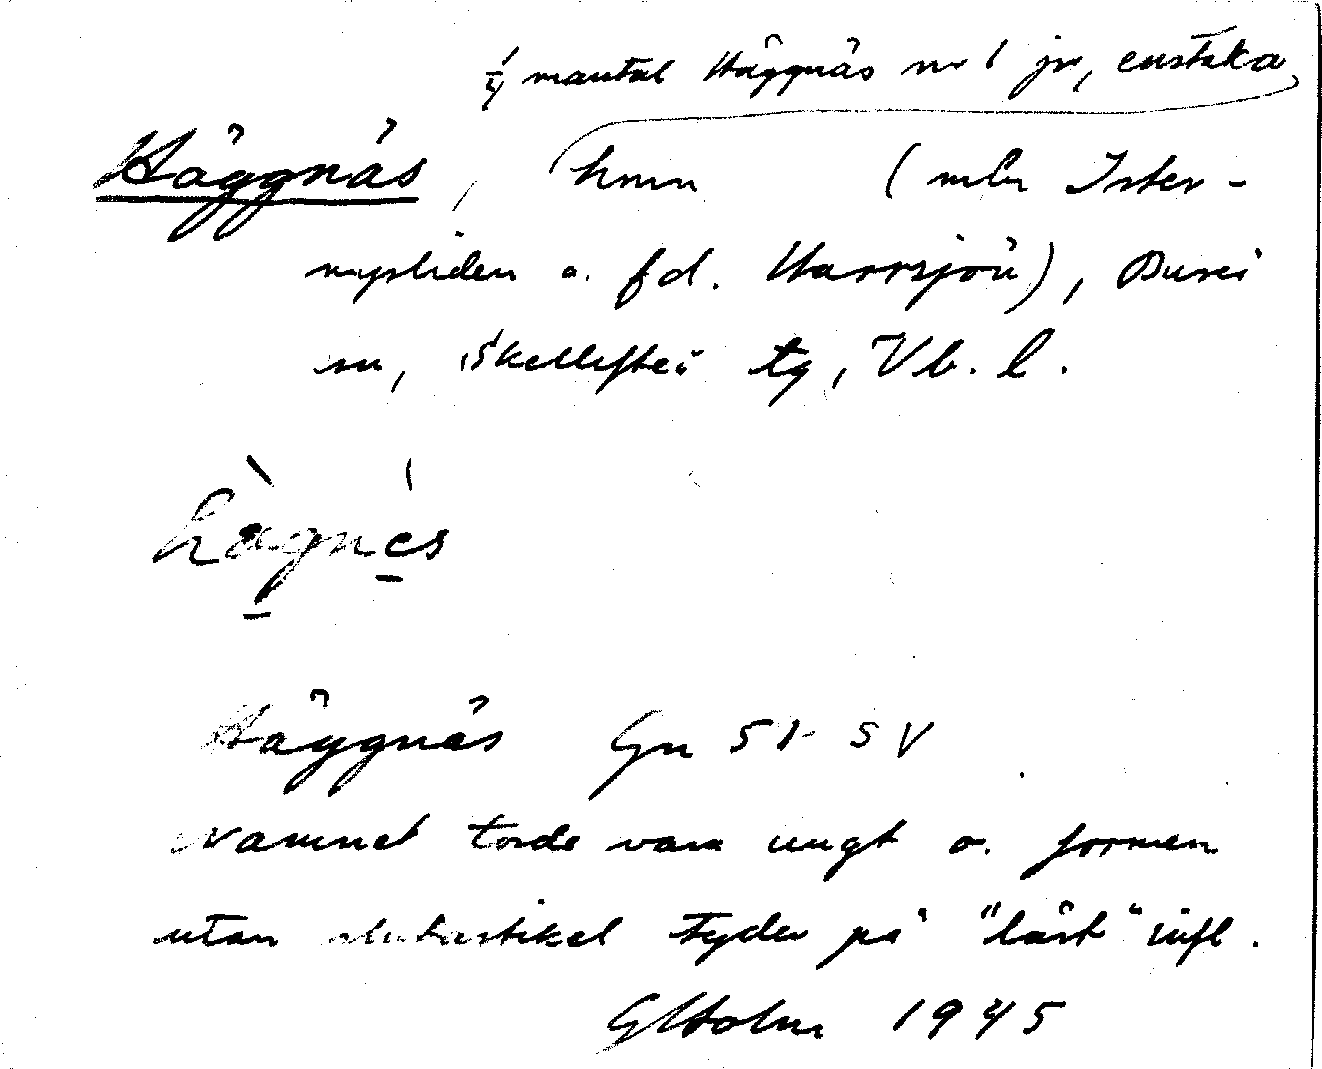 mantal Häggnäs nr 1 jr, enstaka
Häggnäs, hmn (mln Inter-
nystiden o. f d. Harrsjön), Bureå
sn, Skellefteå tg, Vb. l.
Hägnäs
Häggnäs Gn 51 SV
Namnet torde vara ungt o. formen
utan slutartikel tyder på "läst" infl.
GHolm 1945